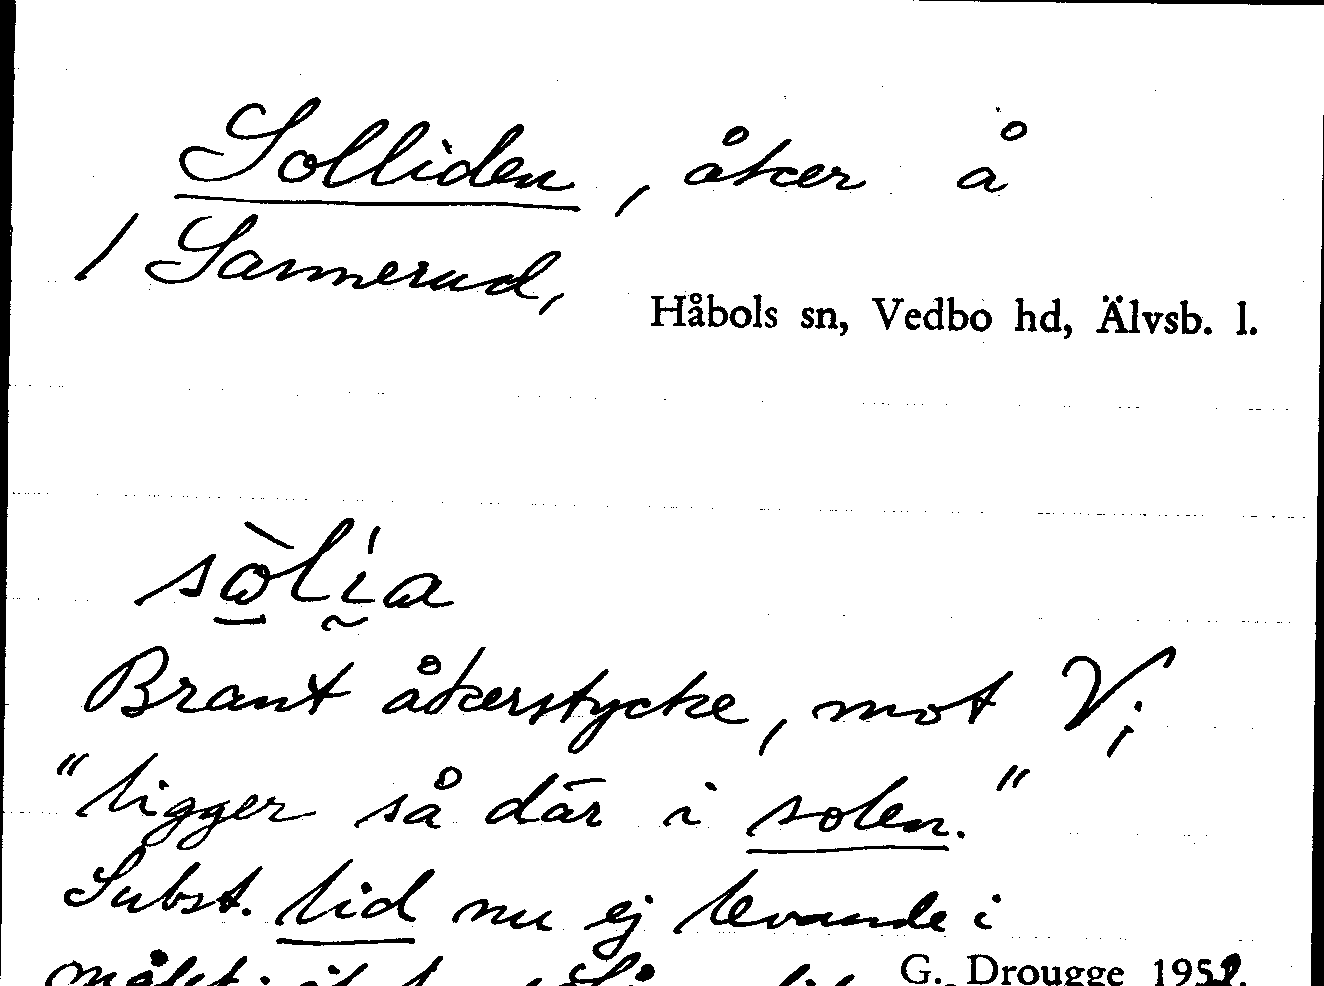 Solliden, åker å
/ Sannerud,
Håbols sn, Vedbo hd, Älvsb. l.
sòlìa
Brant åkerstycke, mot V;
"ligger så där i solen."
Subst. lid nu ej levande i
målet;
G. Drougge 1952.